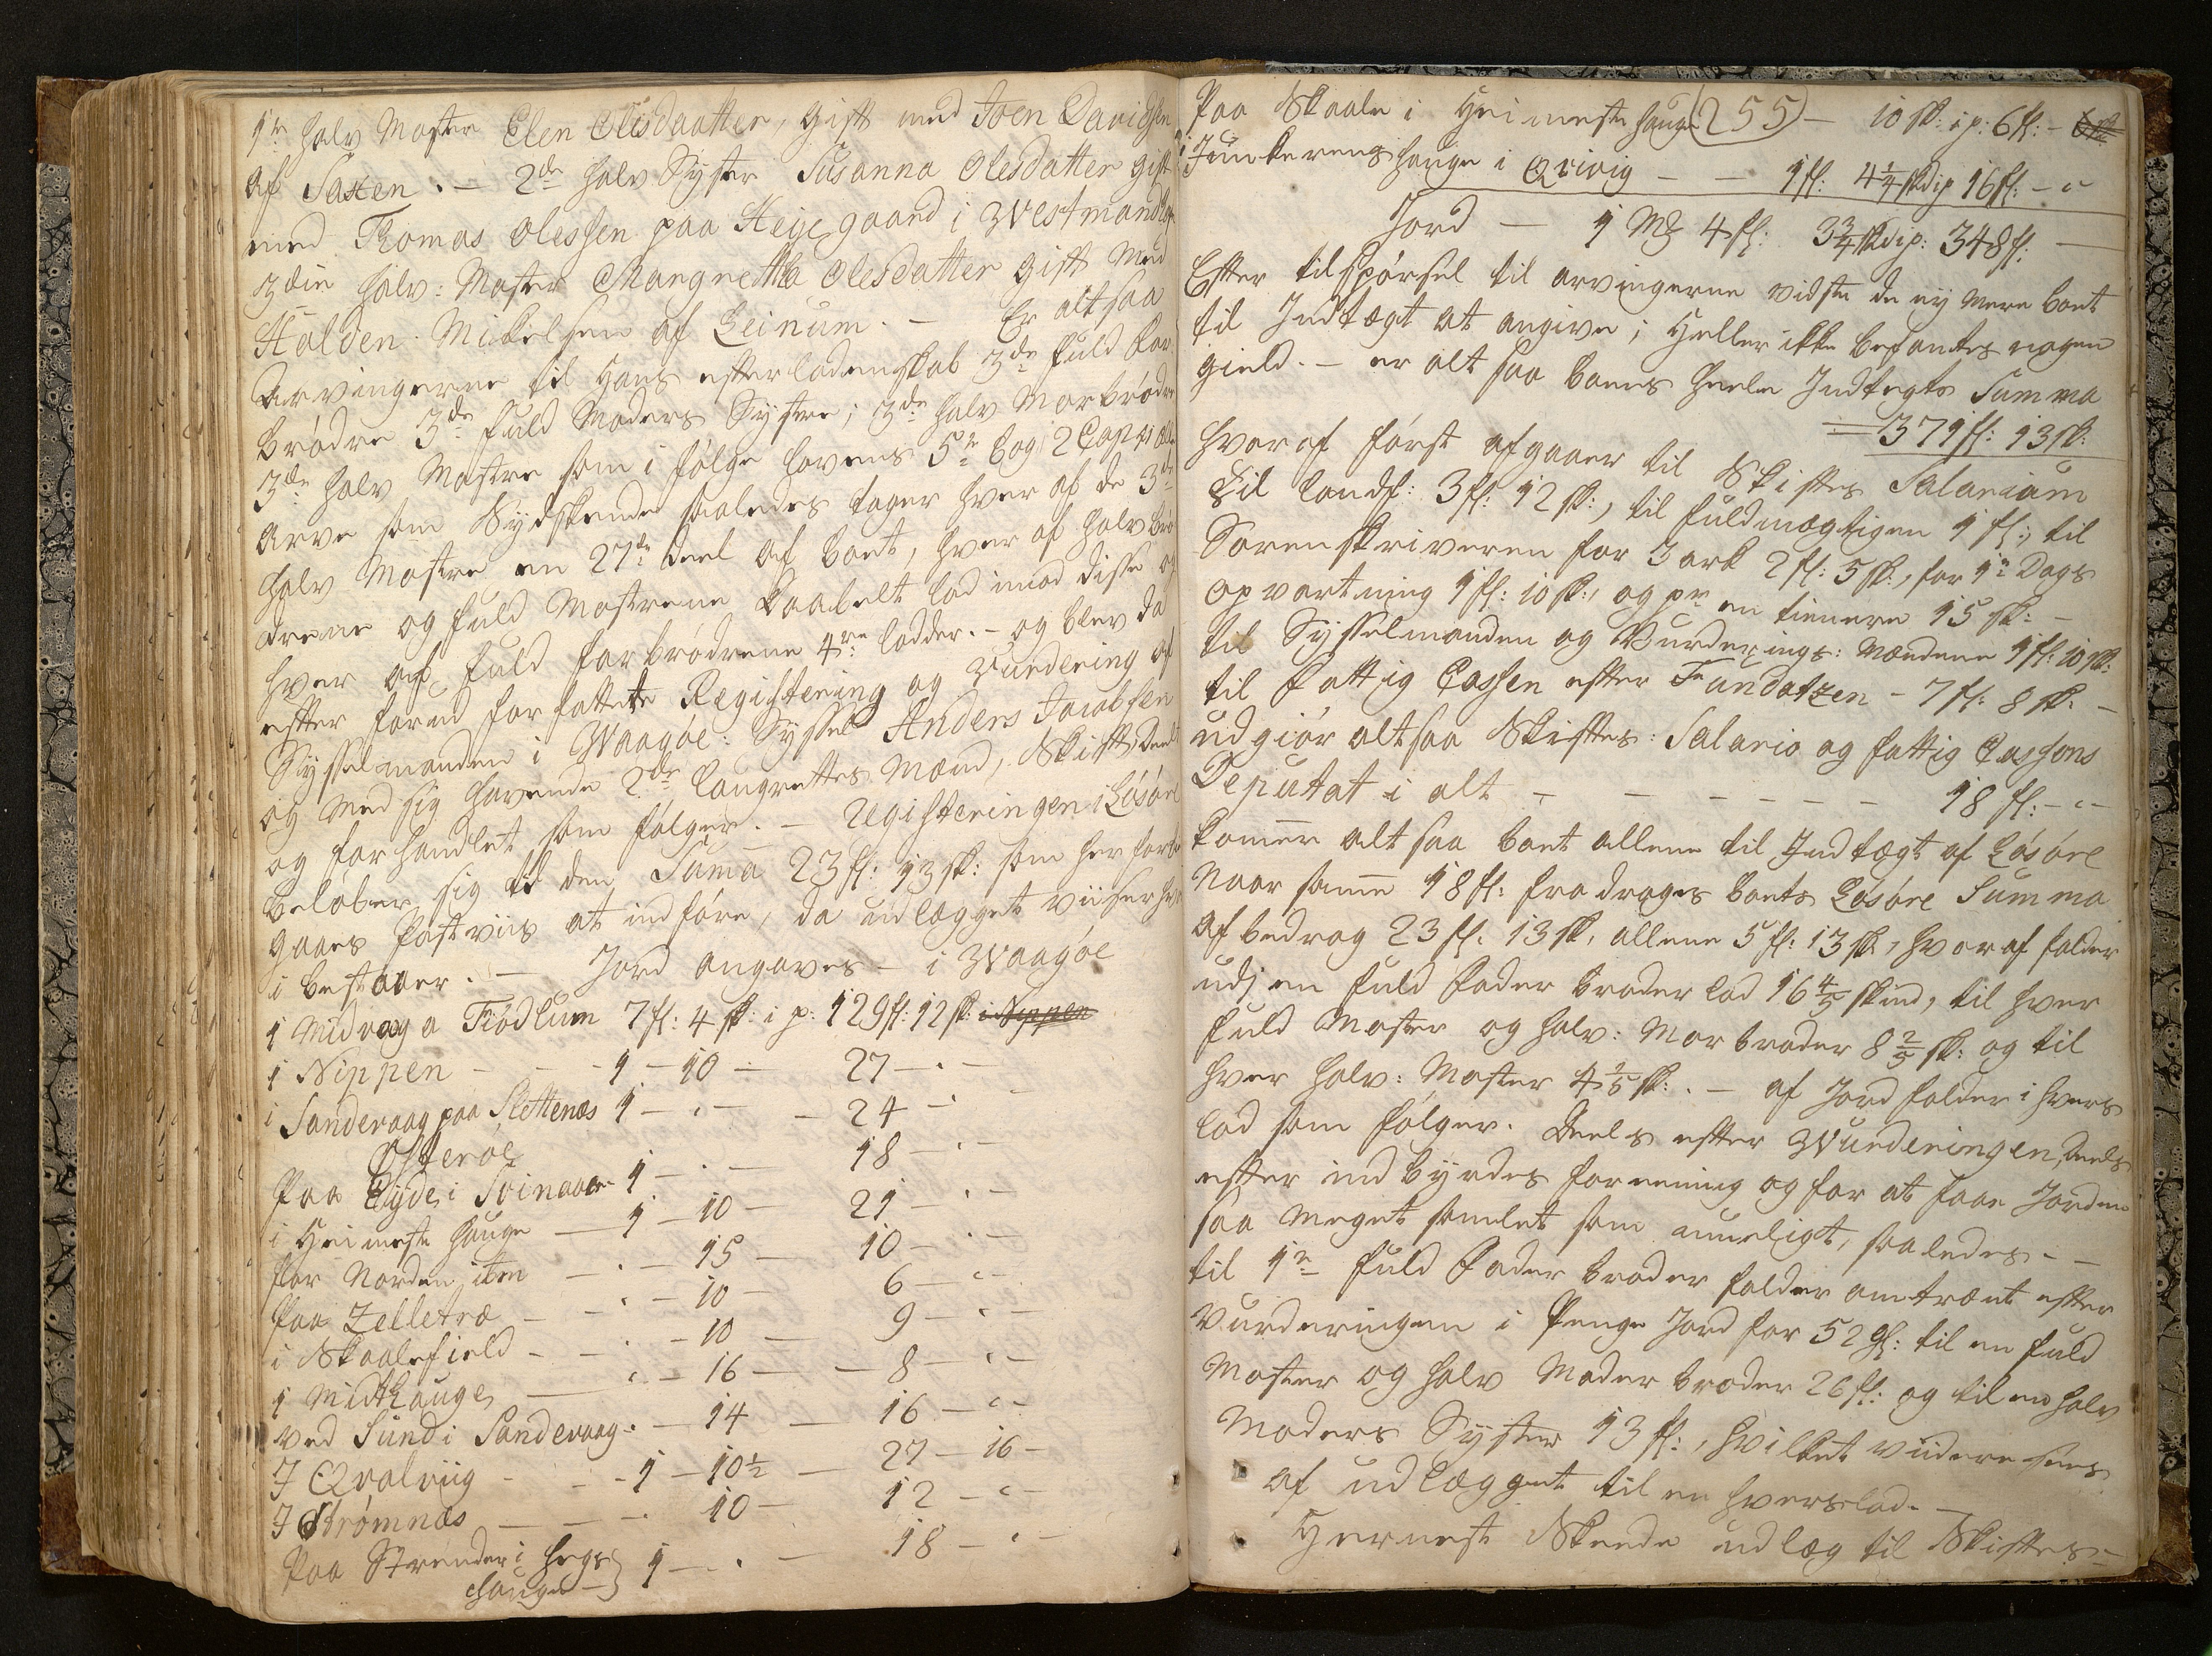 1n: halv Moster Elen Olesdaatter, gift med Joen Davidsen
af Saxen. – 2de halv Syster Susanna Olesdatter gift
med Thomas Olessen paa Heyegaard i Westmanh
3die halv: Moster Margretha Olesdatter gift med
Halden Mickelsen af Leinum. – Er altsaa
Arvingerne til hans efterladenskab 3de fuld Far
brødre 3de fuld Moders Systre; 3de halv Morbrødre
3de halv Mostre som i følge Lovens 5te bog 2 Capit
arve som Sydskende saaledes tager hver af de 3de
halv Mostre en 27de deel af boet, hver af halv brø
drene og fuld Mostrene dobbelt lod imod disse og
hver af fuld farbrødrene 4re lodder. – og blev da
efter forud forfattete Registering og Vurdering af
Sysselmanden i Waagøe: Syssel Anders Jacobsen
og med sig havende 2de Laugrettes Mænd, Skift, Deelt
og forhandlet som følger. – Registeringen i Løsøre
beløber sig til den Suma 23 fl: 13 sk: som her forbi
gaaes Postviis at indføre, da udlægget viiser hvo
i bestaaer. – Jord angaves – i Waagøe
i Midvaag a Fiødlum 7 fl: 4 sk: i p: 129 fl: 12 sk: i Nippen
i Nippen – – – 1 – 10 – 27 – . –
i Sandevaag paa Slettenæs 1 – . – – 24 – . –
Østerøe
Paa Byde i Svinaaer 1 – . – 18 – . –
i Heimeste hauge – 1 – 10 – 21 . –
for Norden item – . – 15 – 10 – . –
Paa Zelletræ – – . – 10 – 6 – " –
i Skaalefield – – . – 10 – 9 – . –
i Midthauge – . – 16 – – 8 – . –
ved Sund i Sandevaag . – 14 – 16 – " –
I Qvalviig – – 1 – 10½ – 27 – 16 –
I Strømnæs – – – . 10 – 12 – " –
Paa Strender i Høgs
hauge – } 1 – . – 18 – . –
Paa Skaale i Heimeste hauge 255 – 10 sk: i p: 6 fl: –
i Junkerens hauge i Qvivig – – 1 fl: 4¼ sk dip 16 fl: – "
Jord – 1 Mk 4 fl: 3¾ sk dip: 348 fl: –
Efter tilspørsel til arvingerne vidste de ey mere boet
til Indtægt at angive; heller ikke befantes nogen
gield. – er alt saa boens heele Indtegts Summa
371 fl: 13 sk:
hvoraf først afgaaer til Skiftes Salarium
til Landf: 3 fl: 12 sk:, til fuldmægtigen 1 fl:, til
Sorenskriveren for 3 ark 2 fl: 5 sk:, for 1n Dags
opvartning 1 fl: 10 sk:, og pr en tienere 15 sk: –
til Sysselmanden og Vurderings: Mændene 1 fl: 10 sk:
til Fattig Cassen efter Fundatzen – 7 fl: 8 sk: –
udgiør altsaa Skiftes: Salario og fattig Cassens
Deputat i alt – – – – – – 18 fl: – " –
kommer alt saa boet allene til Indtægt af Løsøre
Naar samme 18 fl: fradrages boets Løsøre Summa
af bedrag 23 fl: 13 sk. allene 5 fl: 13 sk, hvoraf falder
udj en fuld Fader broder lod 16 4/5 skind, til hver
fuld Moster og halv: Morbroder 8 2/5 sk: og til
hver halv: Moster 4 1/5 sk: . – af Jord falder i hvers
lod som følger. Deels efter Wurderingen, Deels
efter indbyrdes forening og for at faae Jorden
saa meget samlet som mueligt, saaledes – –
til 1n fuld Fader broder falder omtrent efter
Vurderingen i Penge Jord for 52 gl: til en fuld
Moster og halv Moder broder 26 fl: og til en halv
Moders Syster 13 fl:, hvilket viidere sees
af udlægget til en hvers lod. –
Hernest Skeede udlæg til Skiftes –